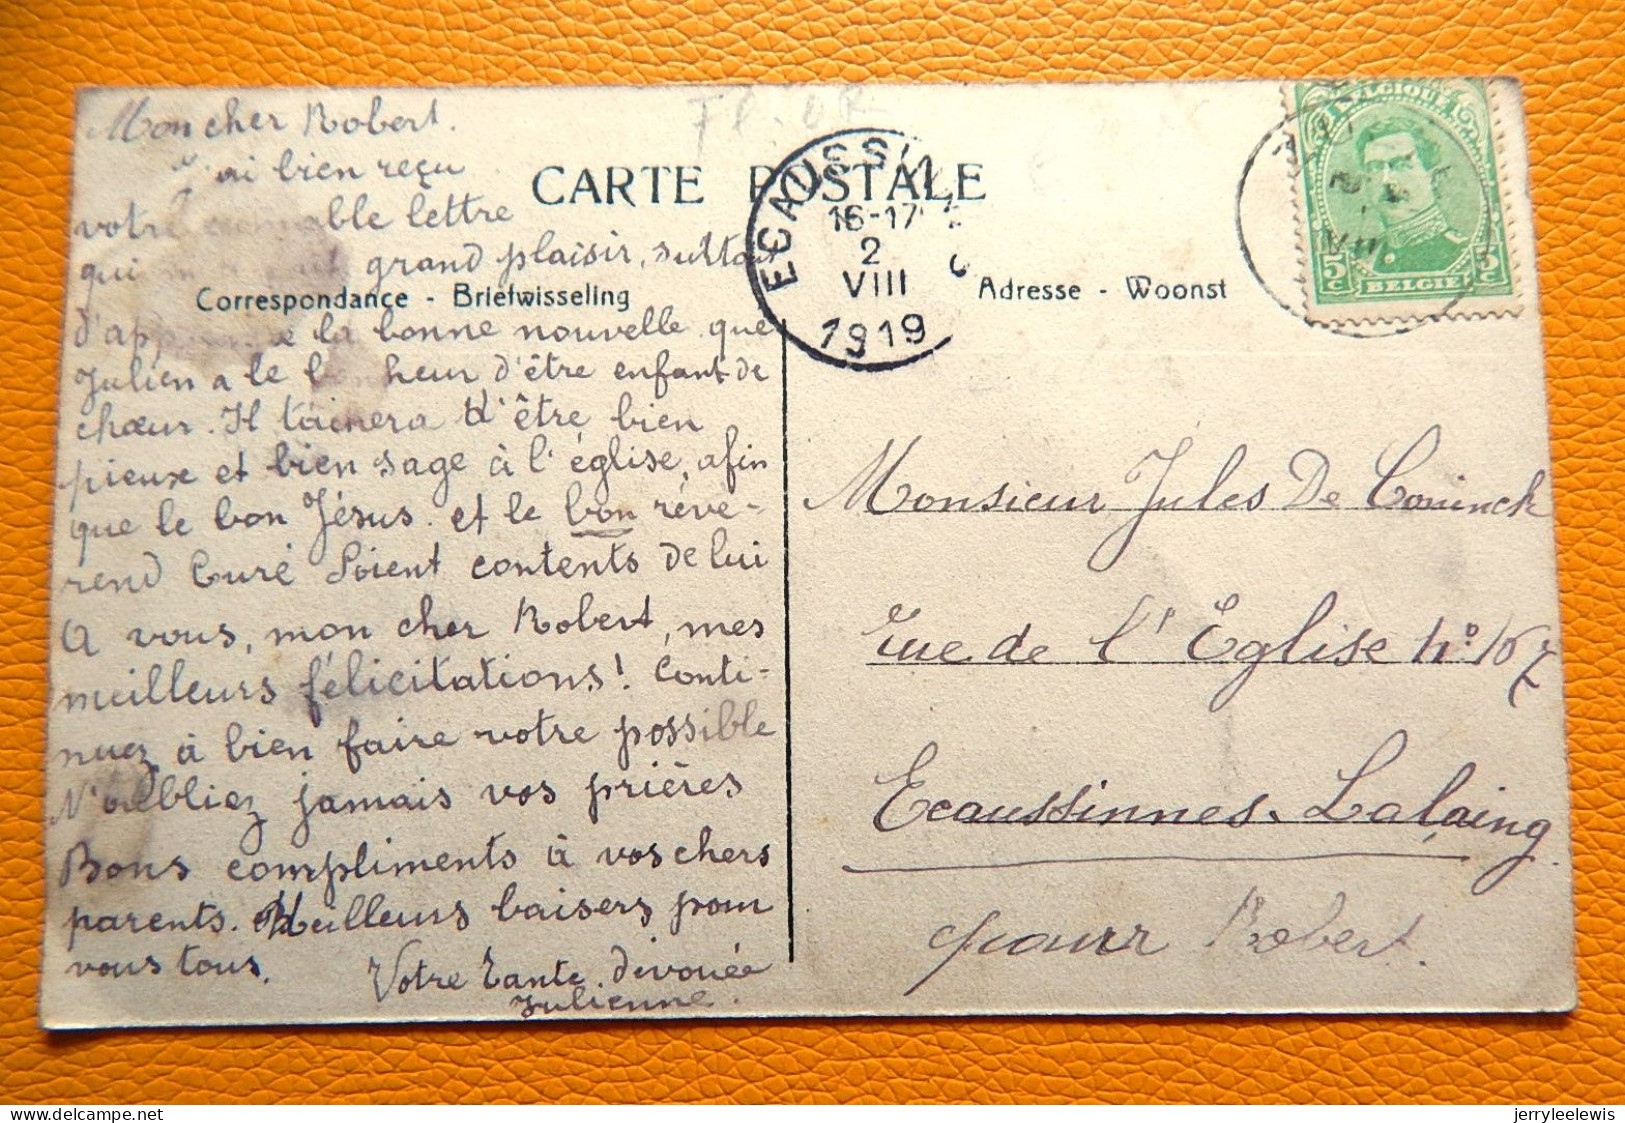 Mon cher Robert.
J'ai bien reçu
votre aimable lettre
qui grand plaisir, surtout
d'apprendre la bonne nouvelle que
Julien a le bonheur d'être enfant de
chœur. Il tâchera d'être bien
pieux et bien sage à l'église, afin
que le bon Jésus et le bon révé-
rend Curé soient contents de lui
A vous, mon cher Robert, mes
meilleurs félicitations! Conti-
nuez à bien faire votre possible
N'oubliez jamais vos prières
Bons compliments à vos chers
parents. Meilleurs baisers pour
vous tous.
Votre Tante dévouée
Julienne.
CARTE POSTALE
Correspondance - Briefwisseling
Adresse - Woonst
ECAUSSIN
16-17
2
VIII
1919
BELGIQUE
5c 5c
BELGIE
VIII
Monsieur Jules De Coninck
rue de l'Eglise n° 167
Ecaussinnes-Lalaing
pour Robert.
jerryleelewis